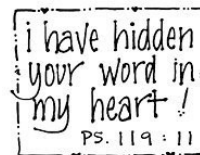 i have hidden
your word in
my heart !
PS. 119 : 11